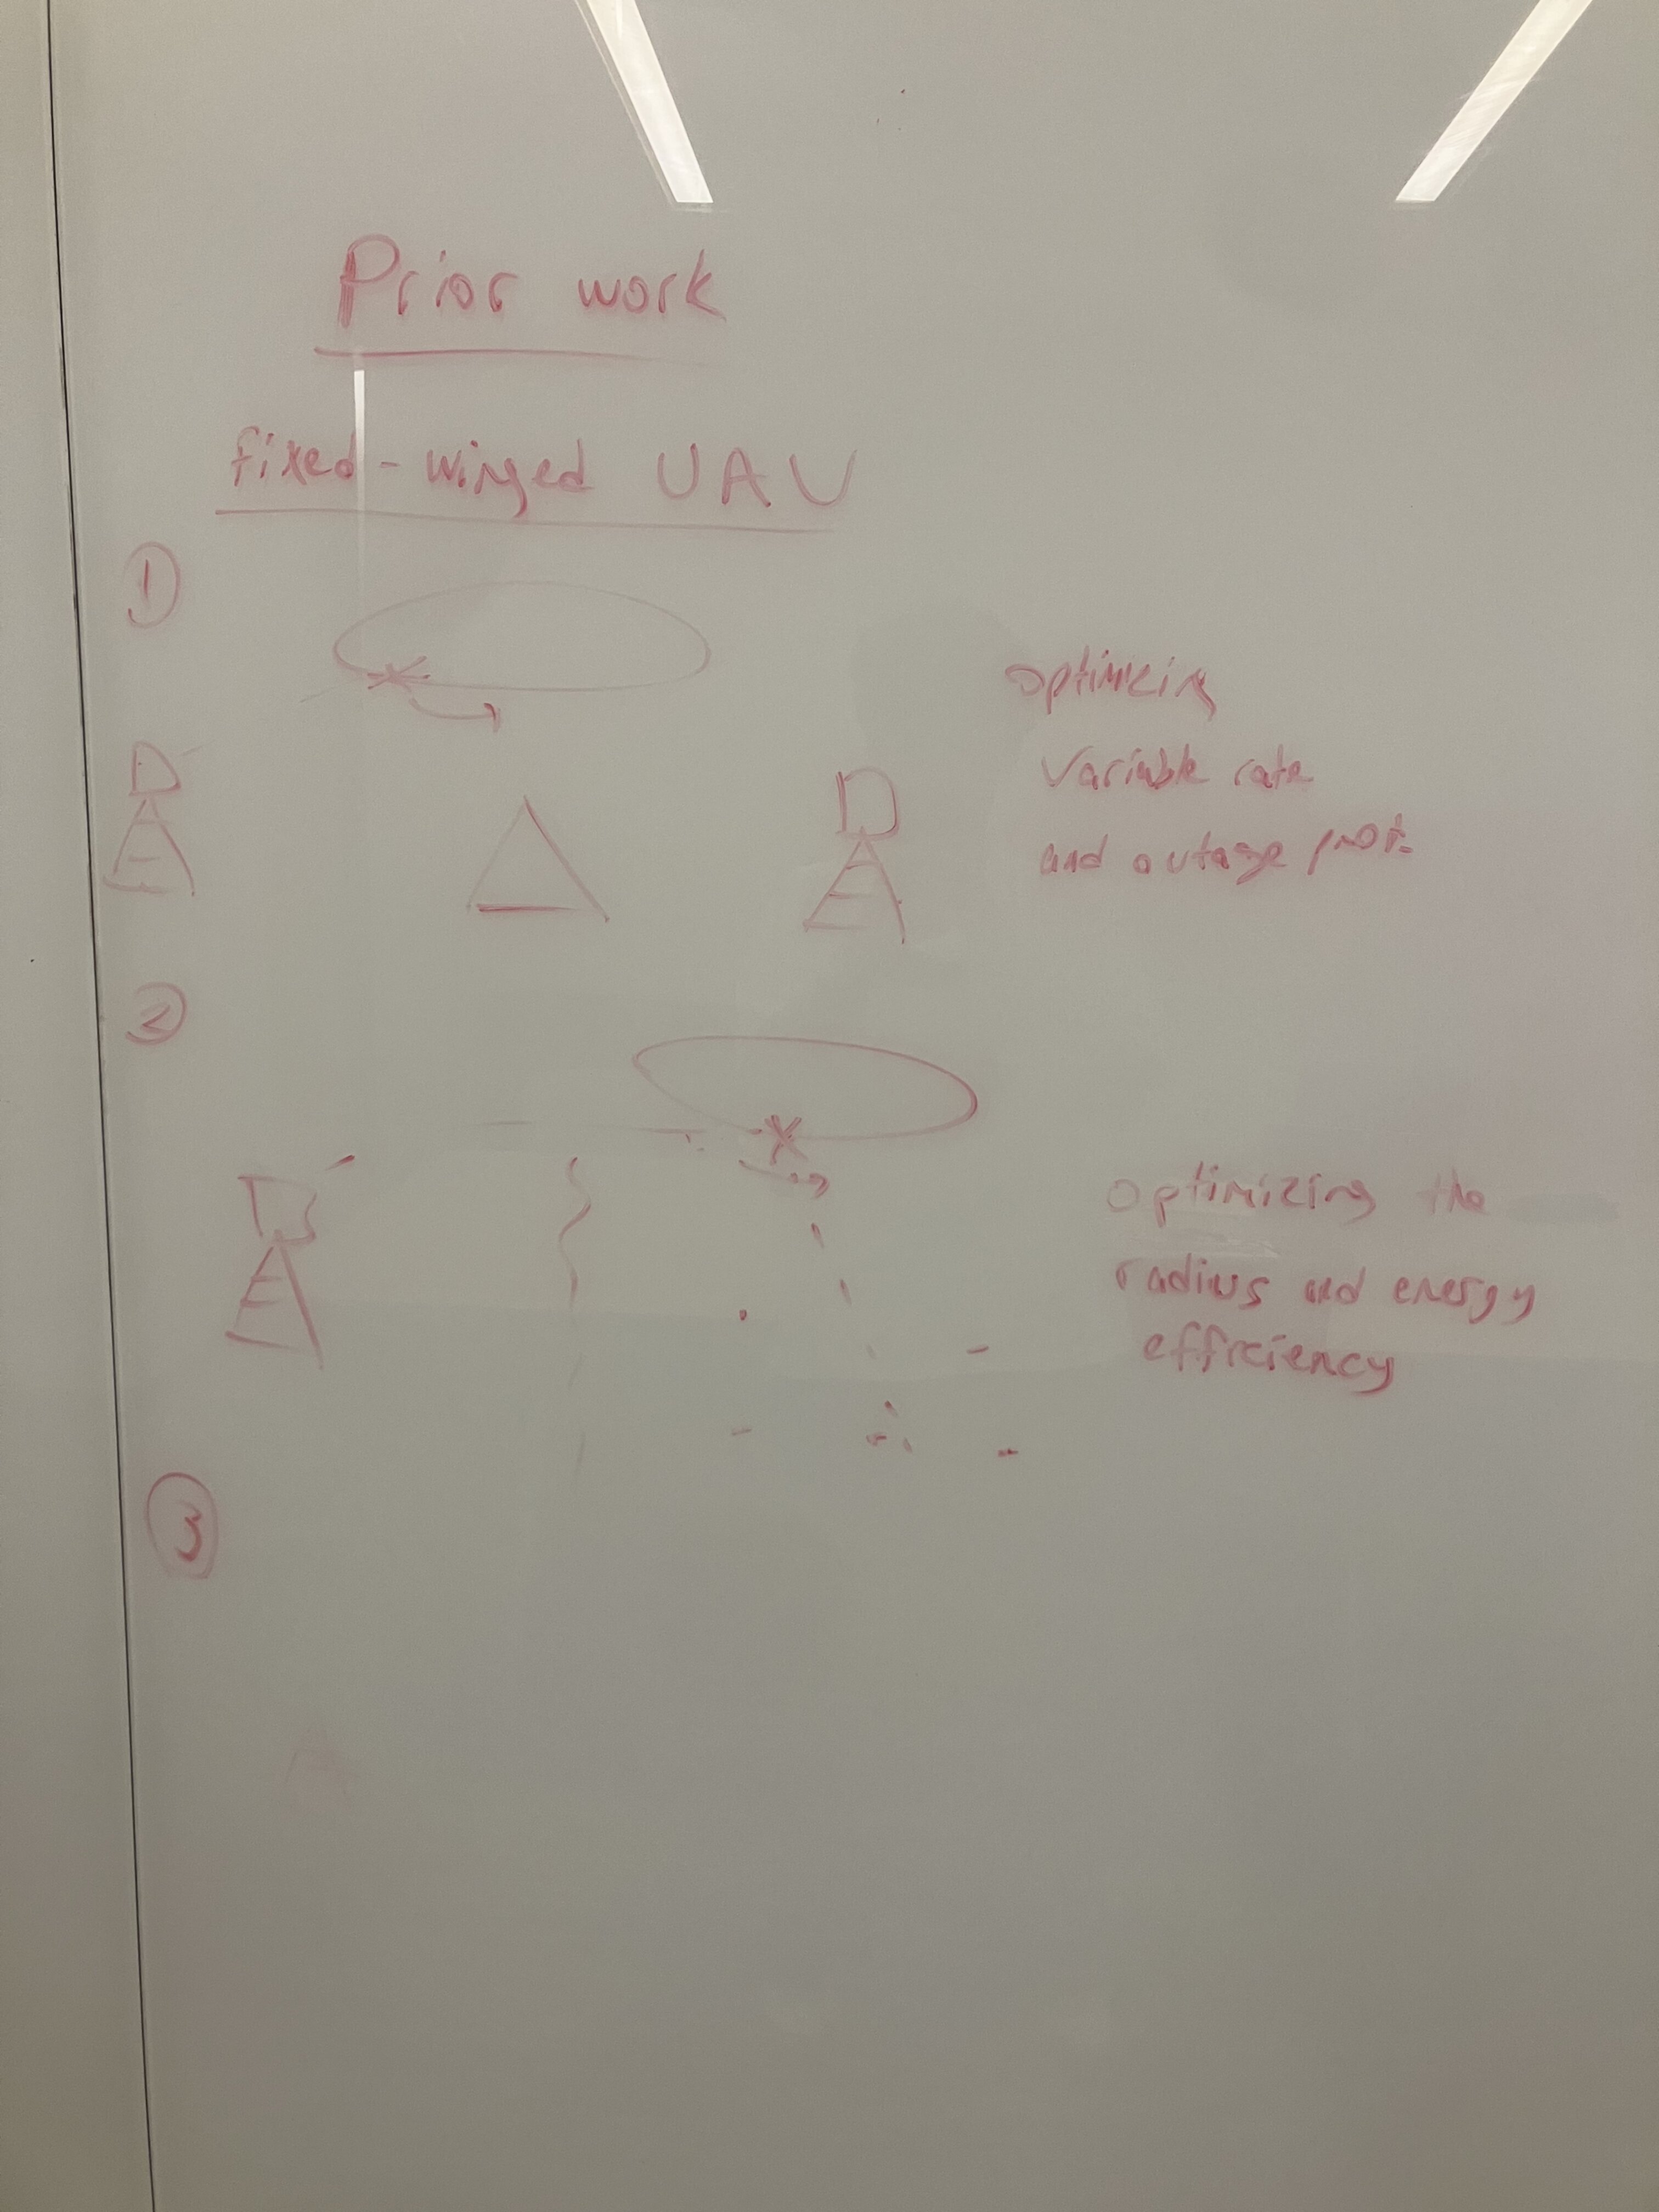 Prior work
fixed-winged UAV
1
optimizing
variable rate
and outage prob.
2
optimizing the
radius and energy
efficiency
3